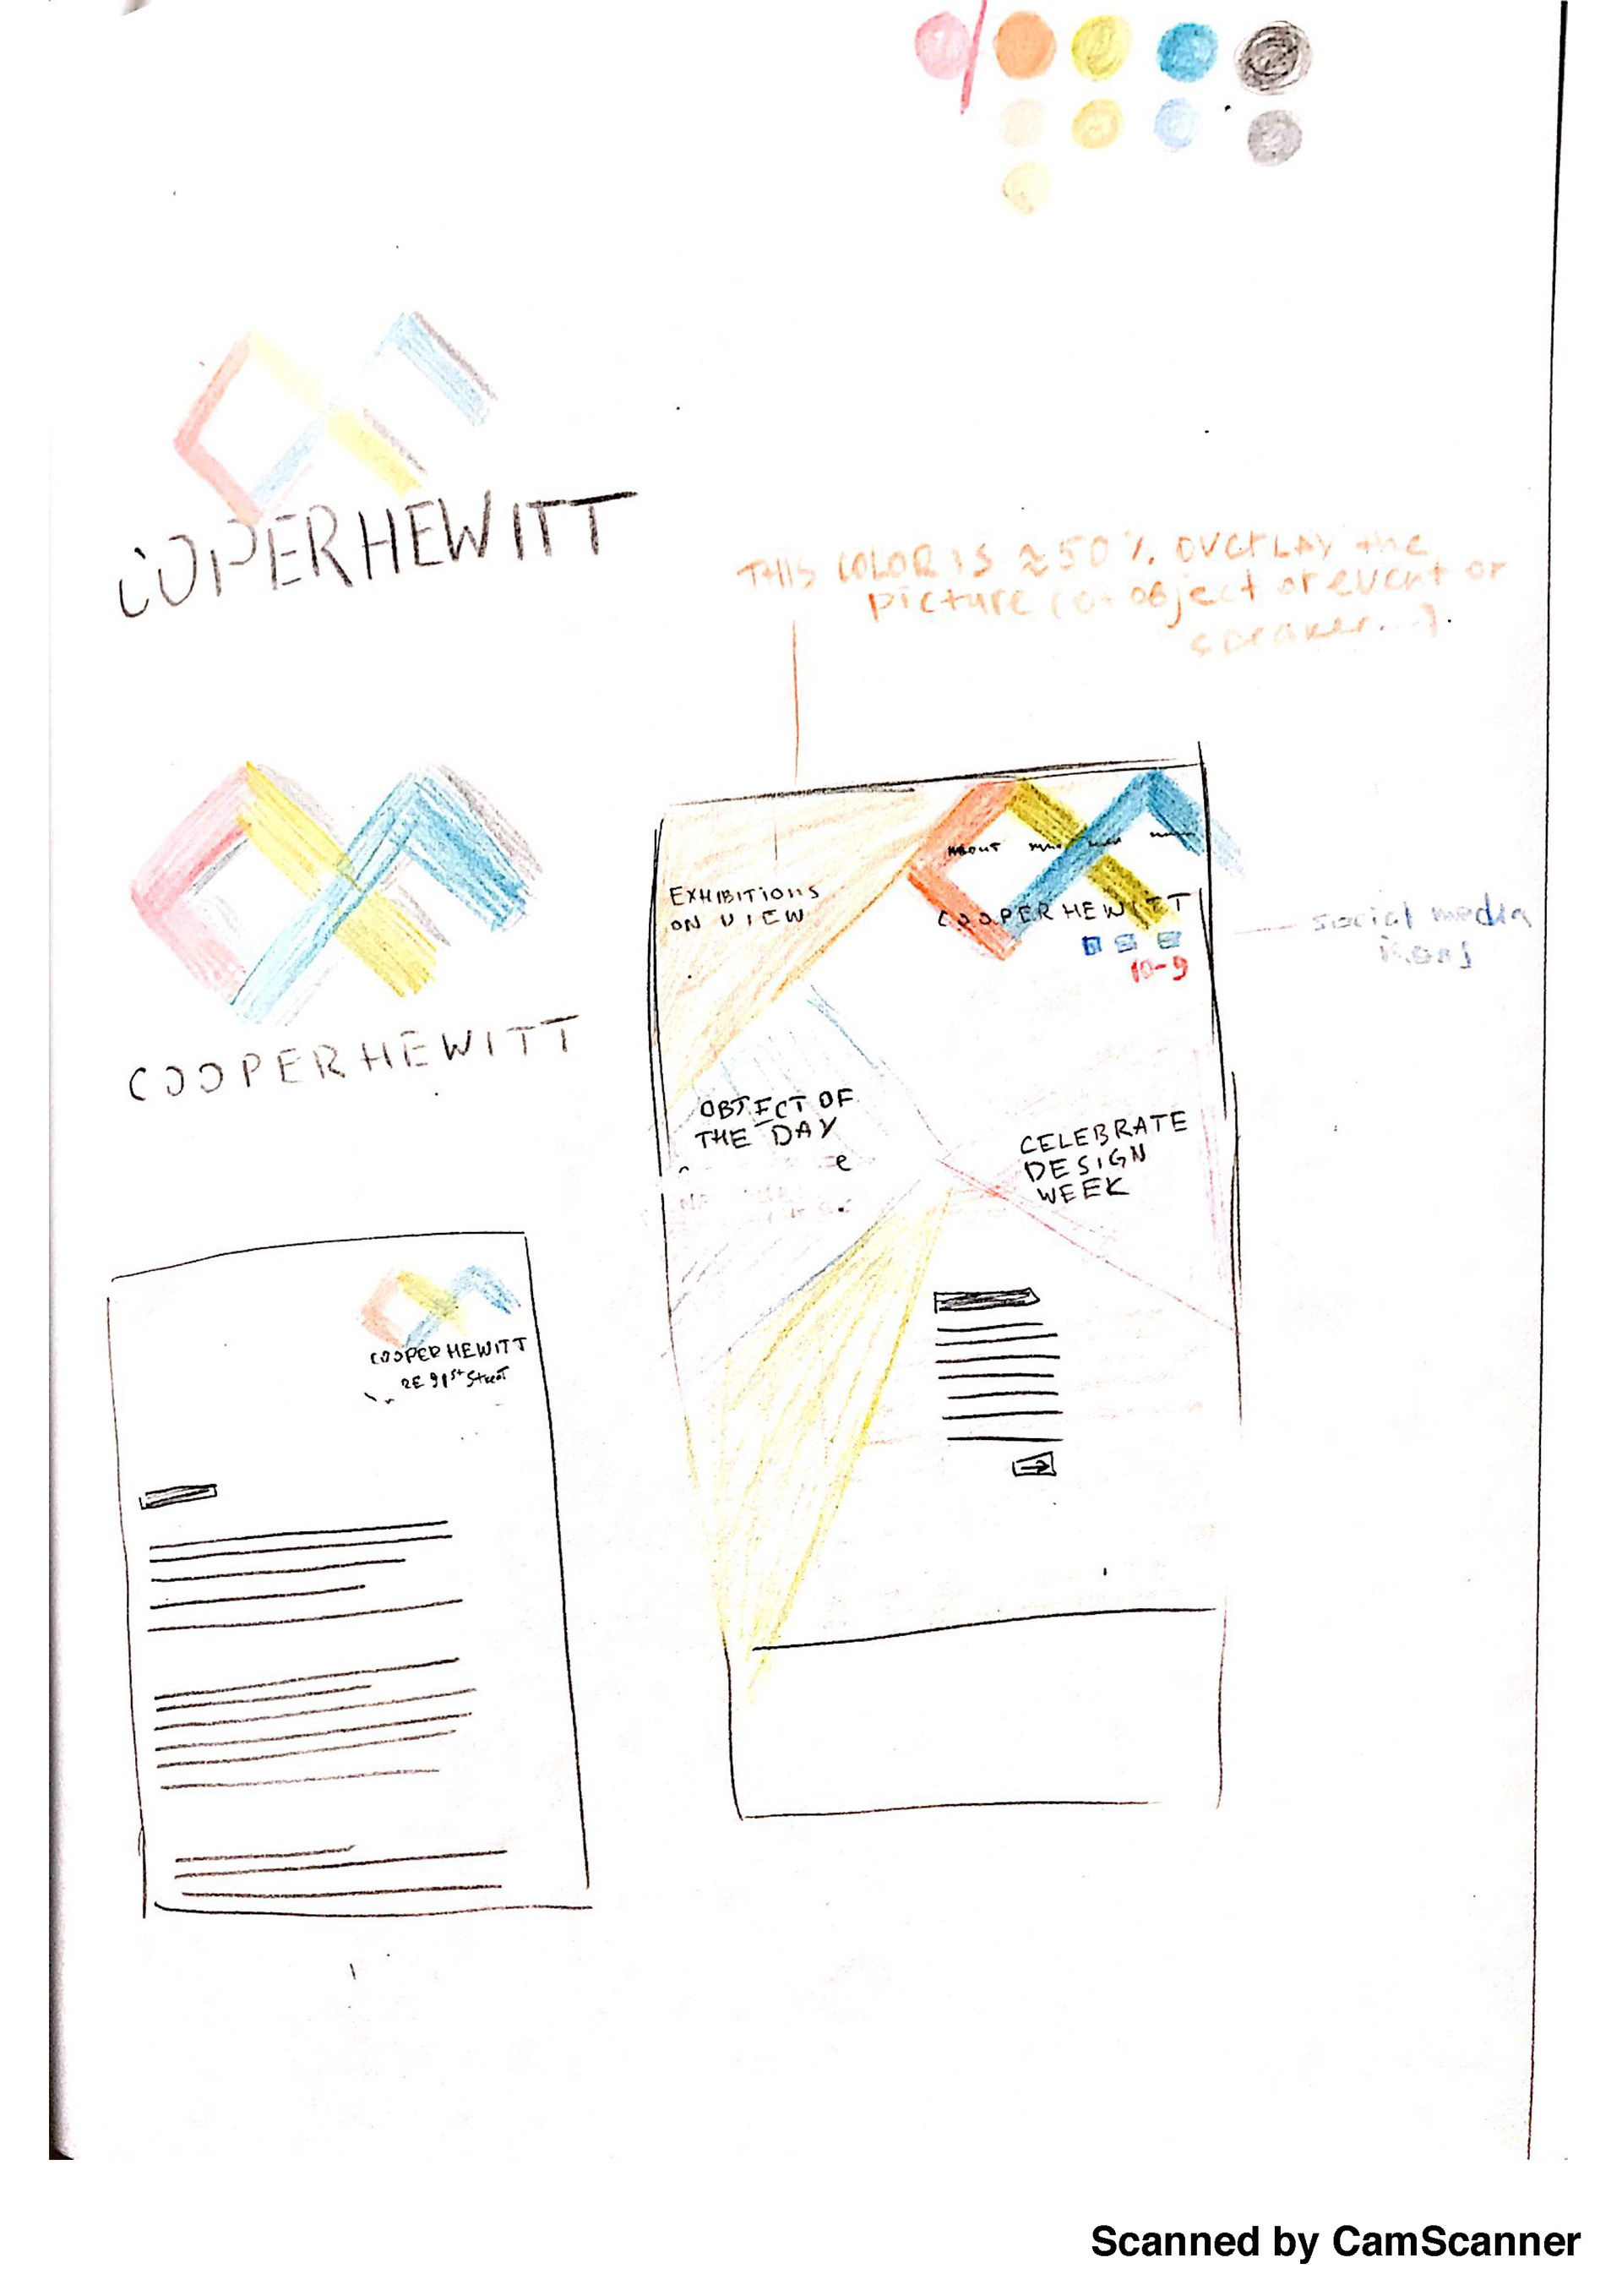 COOPERHEWITT
THIS COLOR IS ≈50%. OVERLAY the
picture (or object or event or
speaker...).
EXHIBITIONS
ON VIEW
ABOUT
COOPERHEWITT
10-9
social media
COOPERHEWITT
OBJECT OF
THE DAY
e
CELEBRATE
DESIGN
WEEK
COOPER HEWITT
2E 91st Street
Scanned by CamScanner